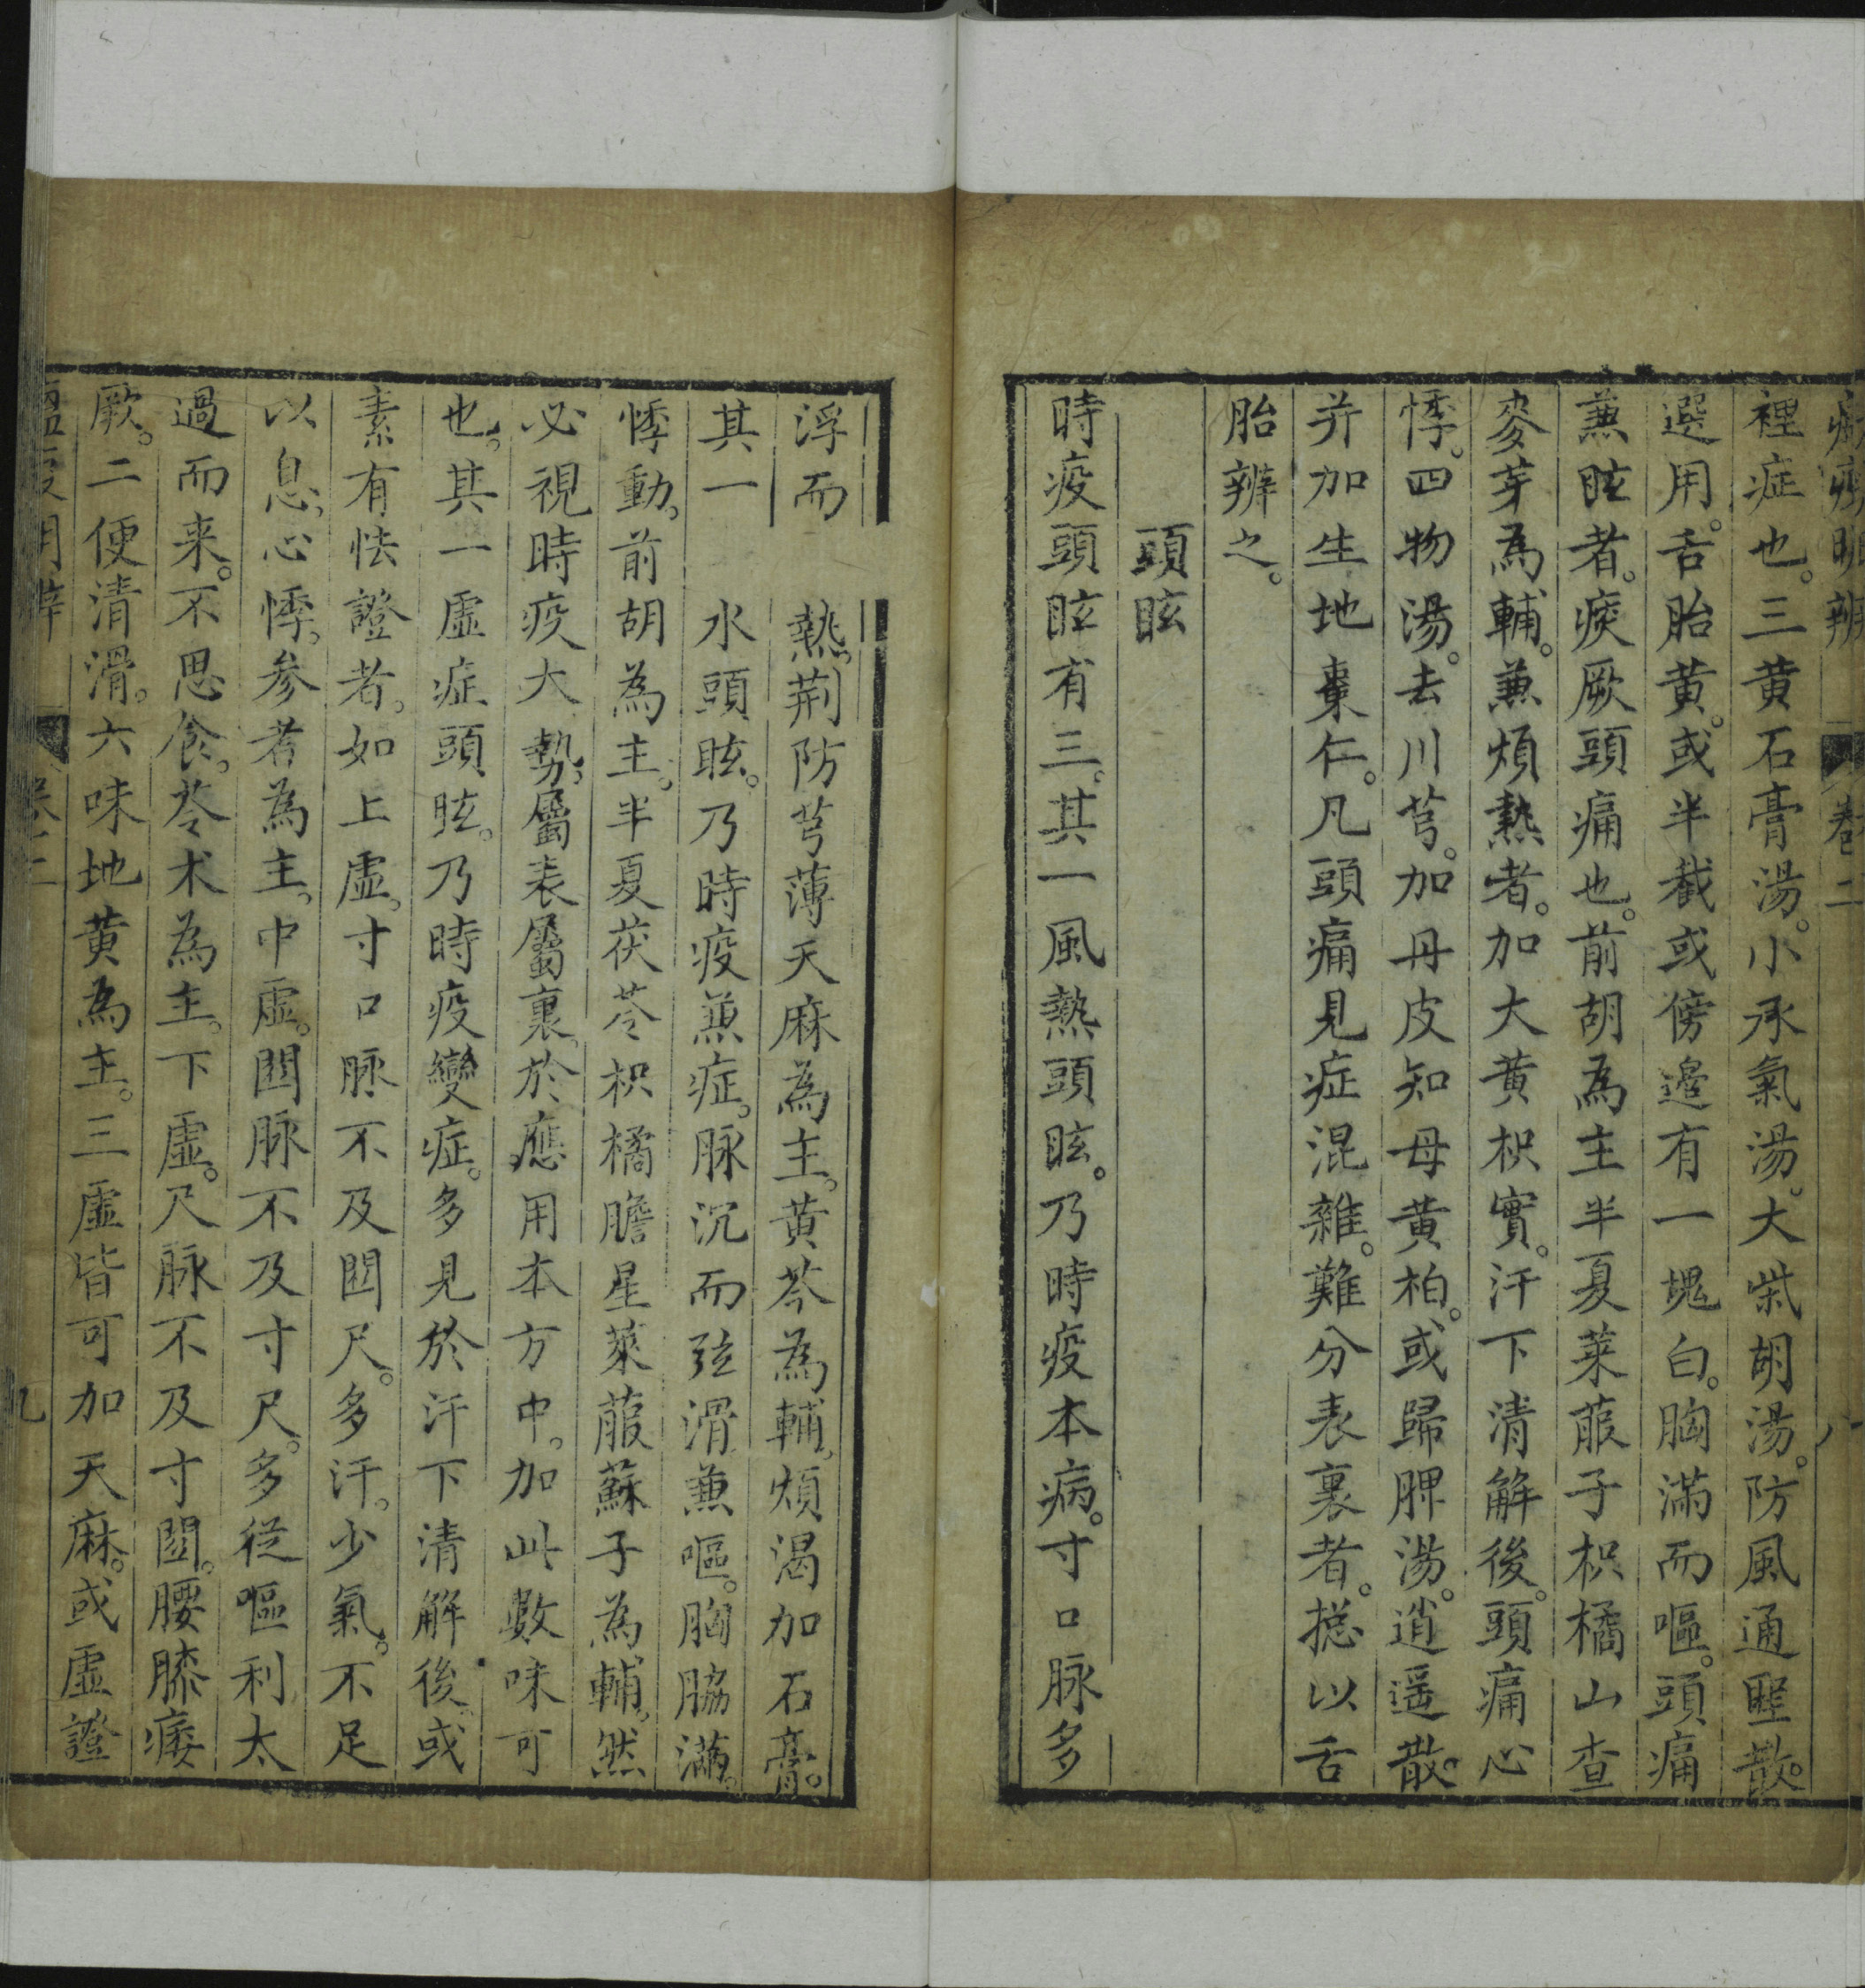 明辨
卷二
八
裡症也。三黄石膏湯。小承氣湯。大柴胡湯。防風通聖散。
選用。舌胎黄。或半截或傍邉有一塊白。胸滿而嘔。頭痛
兼眩者。痰厥頭痛也。前胡為主半夏萊菔子枳橘山查
麥芽為輔。兼煩熱者。加大黄枳實。汗下清解後。頭痛心
悸。四物湯。去川芎。加丹皮知母黄柏。或歸脾湯。逍遥散。
并加生地棗仁。凡頭痛見症混雜。難分表裏者。摠以舌
胎辨之。
頭眩
時疫頭眩有三。其一風熱頭眩。乃時疫本病。寸口脉多
浮而　熱。荆防芎薄天麻為主。黄芩為輔。煩渴加石膏。
其一　水頭眩。乃時疫兼症。脉沉而弦滑兼嘔。胸脇滿。
悸動。前胡為主。半夏茯苓枳橘膽星萊菔蘇子為輔。然
必視時疫大勢。屬表屬裏。於應用本方中。加此數味可
也。其一虛症頭眩。乃時疫變症。多見於汗下清解後。或
素有怯證者。如上虛。寸口脉不及関尺。多汗。少氣。不足
以息。心悸。参耆為主。中虛。関脉不及寸尺。多從嘔利太
過而来。不思食。苓术為主。下虛。尺脉不及寸関。腰膝痿
厥。二便清滑。六味地黄為主。三虛皆可加天麻。或虛證
明辨
卷二
九